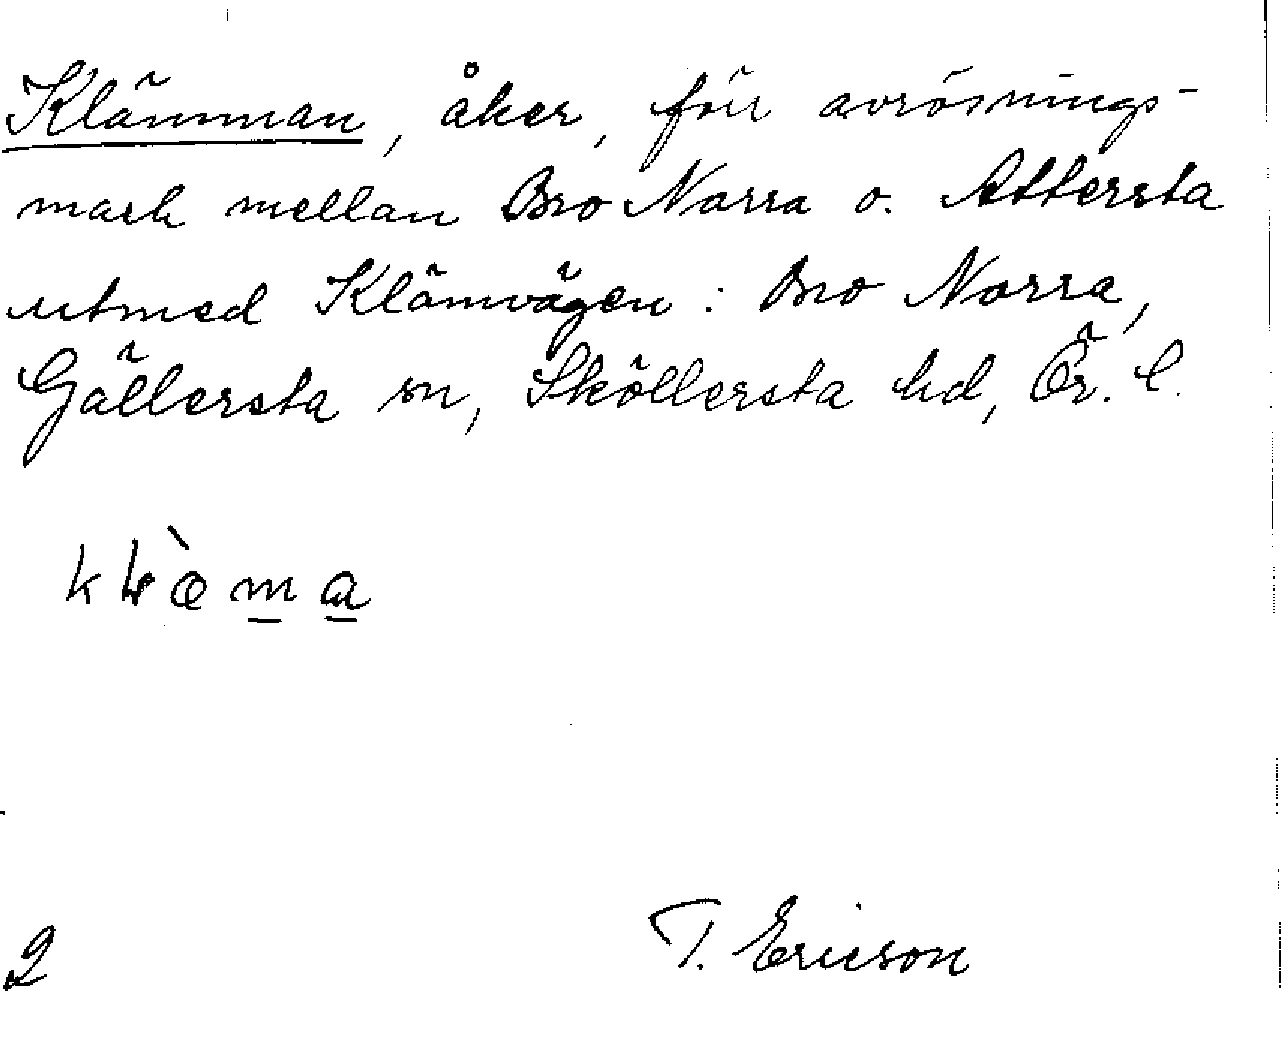 Klämman, åker, förr avrösnings-
mark mellan Bro Norra o. Attersta
utmed Klämvägen: Bro Norra,
Gällersta sn, Sköllersta hd, Ör. l.
T. Ericson
2